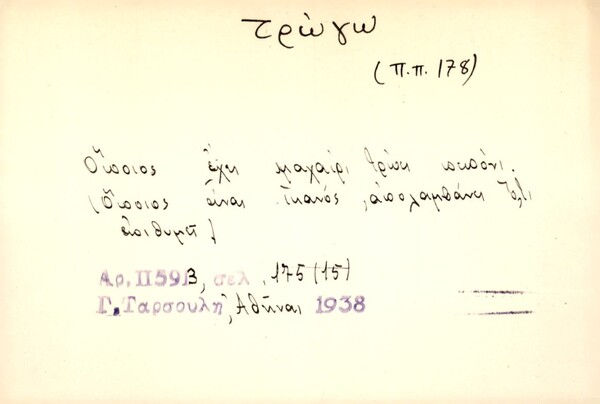 τρώγω
(Π.π. 178)
Ὅποιος ἔχει μαχαίρι τρώει πεπόνι.
(Ὅποιος εἶναι ἱκανός, ἀπολαμβάνει ὅ,τι
ἐπιθυμεῖ)
Αρ. Π59β, σελ. 175 (15)
Γ. Ταρσουλη, Ἀθῆναι 1938